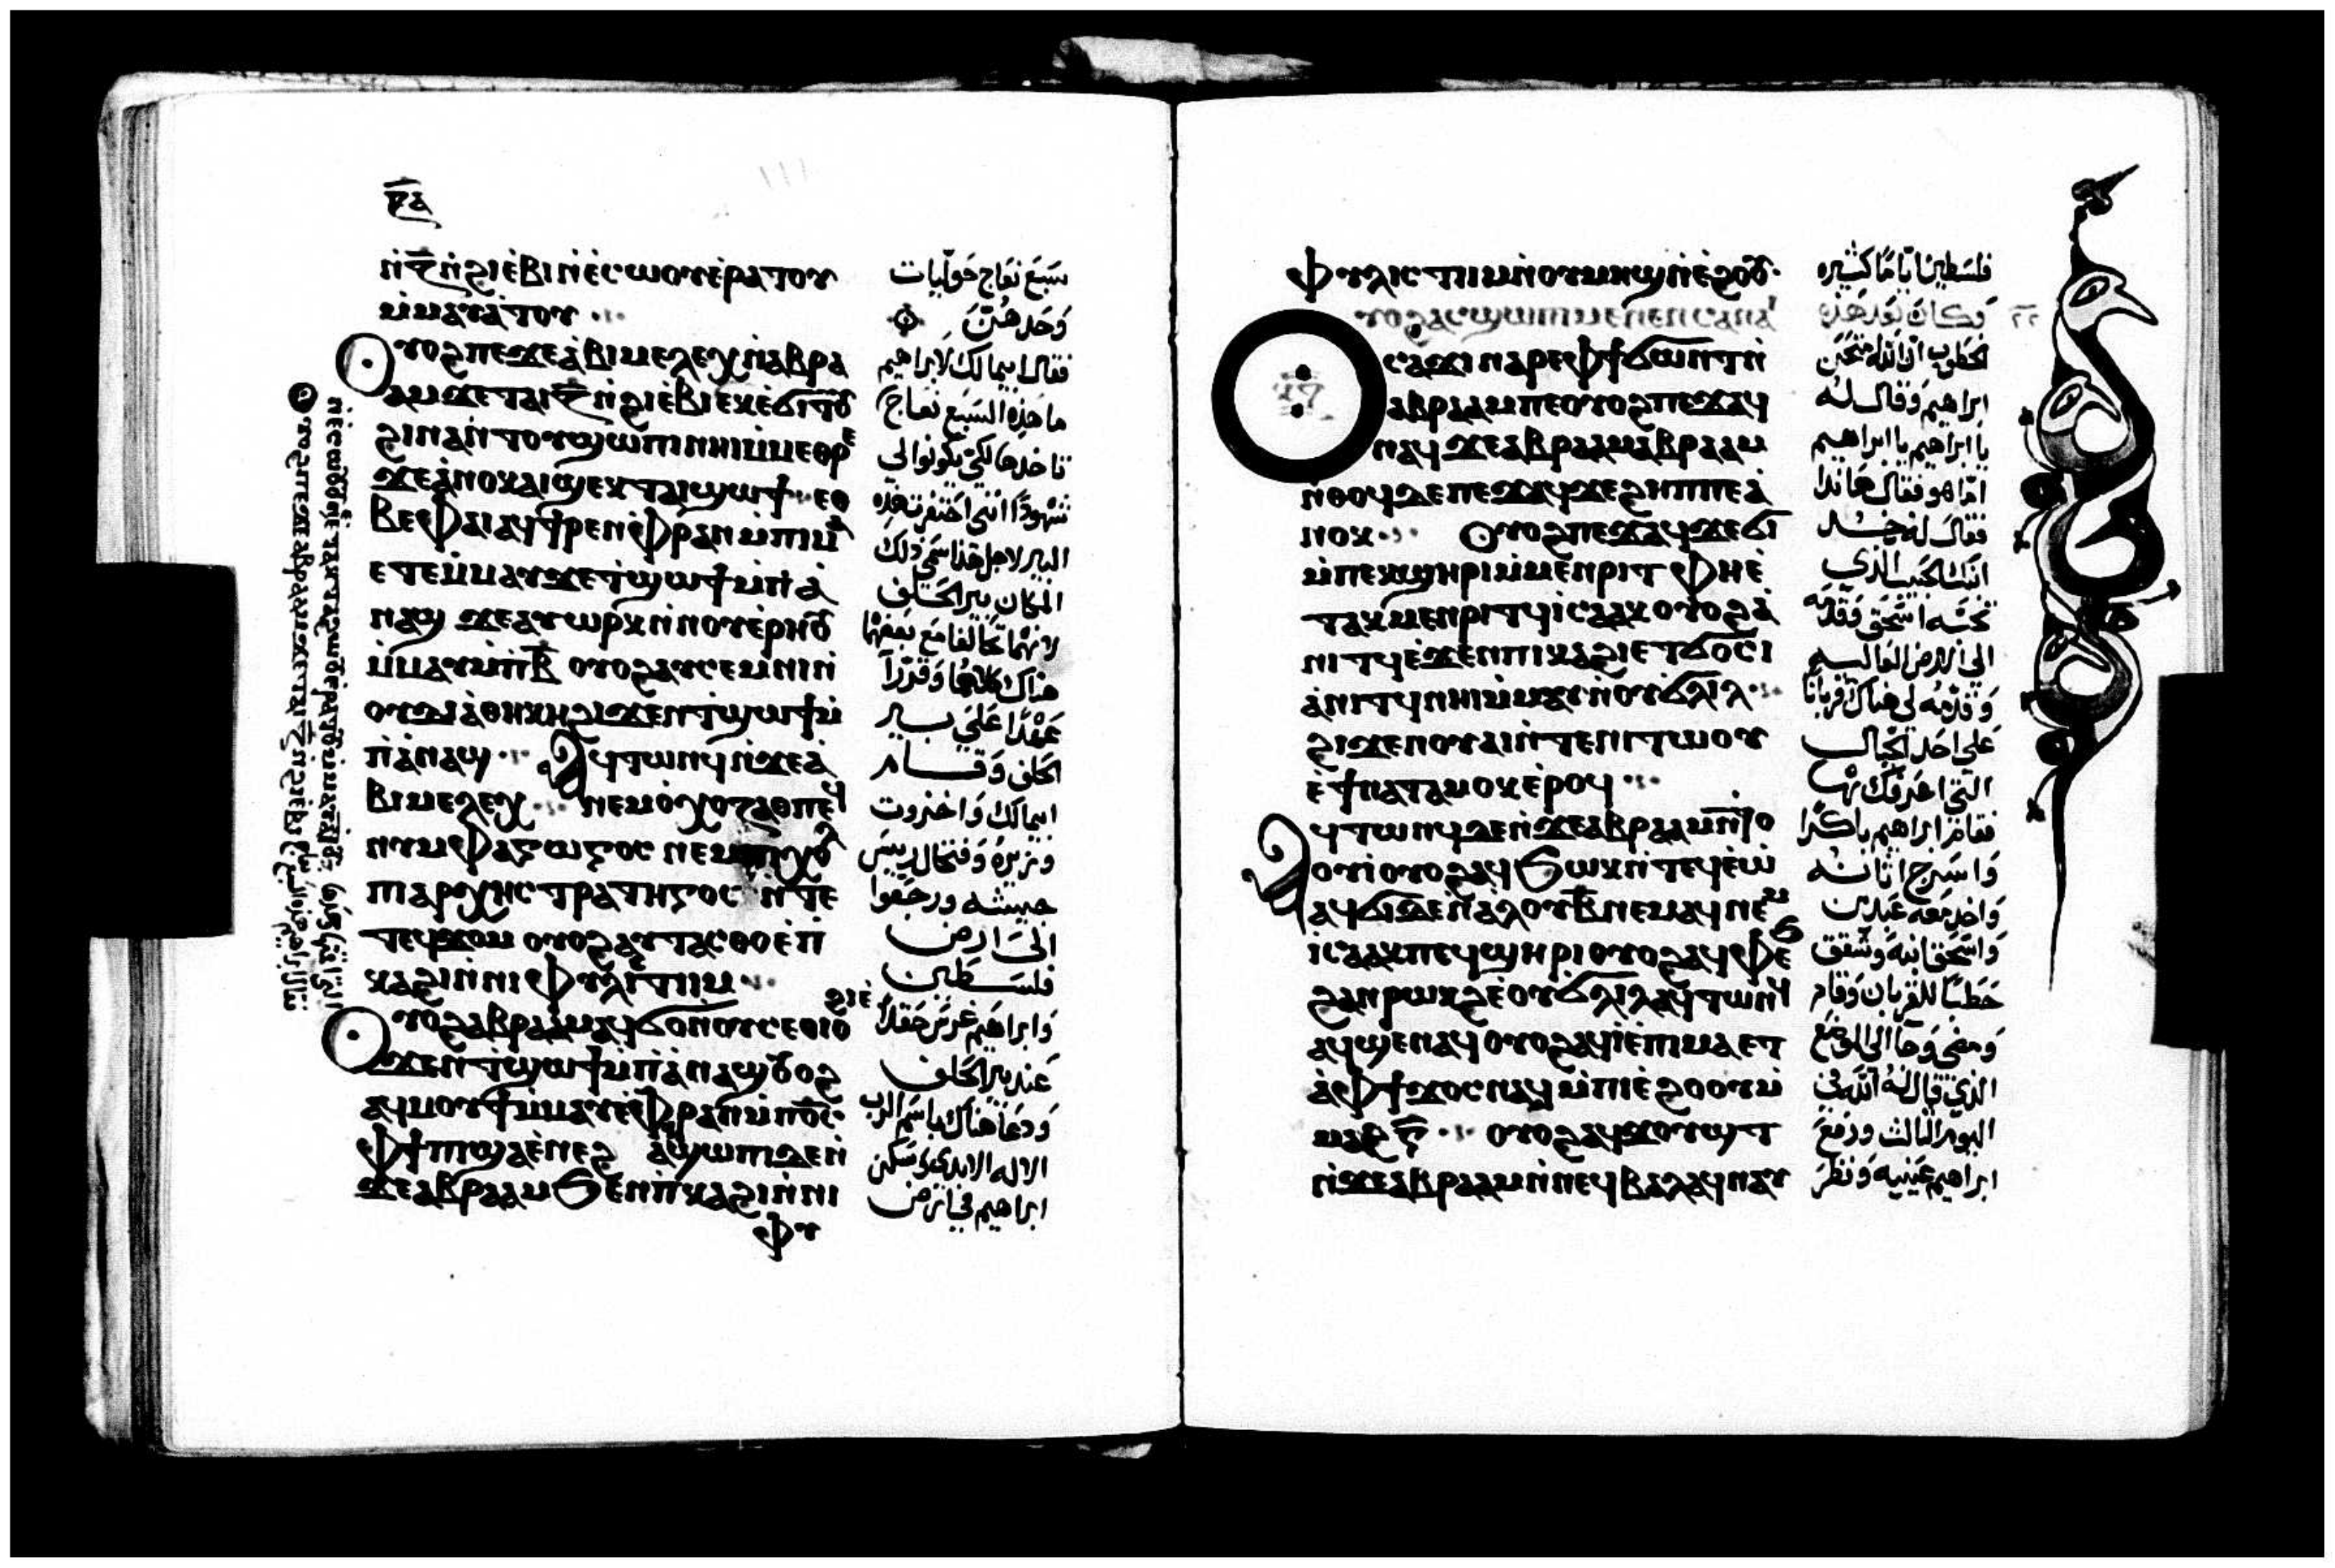 ⲣⲁ
ⲛ̇ⲍ̄ⲛ̇ϩⲓⲉ̀ⲃⲓⲛ̇ⲉ̀ⲥⲱⲟⲩⲉ̀ⲣⲁⲧⲟⲩ
ⲙ̇ⲙⲁⲩⲁ̀ⲧⲟⲩ
ⲟⲩⲟϩⲡⲉϫⲉⲁ̀ⲃⲓⲙⲉⲗⲉⲭⲛ̇ⲁⲃⲣⲁ
ⲁⲙϫⲉⲧⲁⲓⲍ̄ⲛ̇ϩⲓⲉ̀ⲃⲓⲉⲕⲉ̀ϭⲓⲧⲟⲩ
ϩⲓⲛⲁⲛ̇ⲧⲟⲩϣⲱⲡⲓⲛⲏⲓⲙ̇ⲙⲉⲑⲣⲉ
ϫⲉⲁ̀ⲛⲟⲕⲁⲓϣⲉⲕⲧⲁⲓϣⲱϯ ⲉⲑ
ⲃⲉⲫⲁⲓⲁϥϯⲣⲉⲛⲫ̇ⲣⲁⲛⲙ̇ⲡⲓⲙⲁ
ⲉⲧⲉⲙ̇ⲙⲁⲩϫⲉϯϣⲱϯⲙ̇ⲡⲁ̀
ⲛⲁϣ ϫⲉⲁⲩⲱⲣⲕⲛ̇ⲛⲟⲩⲉ̀ⲣⲏⲟⲩ
ⲙ̇ⲙⲁⲩⲙ̇ⲡⲃ̄ ⲟⲩⲟϩⲁⲩⲥⲉⲙⲛⲓⲛ̇
ⲟⲩⲇⲓⲁ̀ⲑⲏⲕⲏϩⲓϫⲉⲛϯϣⲱϯⲙ̇
ⲡⲁ̀ⲛⲁϣ ⲁϥⲧⲱⲛϥⲛ̇ϫⲉⲁ̀
ⲃⲓⲙⲉⲗⲉⲭ ⲛⲉⲙⲟ̀ⲭⲟⲍⲁⲑⲡⲉϥ
ⲛⲩⲙⲫⲁⲅⲱⲅⲟⲥ ⲛⲉⲙ
ⲡⲁⲣⲭⲏⲥⲧⲣⲁⲧⲏⲅⲟⲥ ⲛ̇ⲧⲉ
ⲧⲉϥϫⲟⲙ ⲟⲩⲟϩⲁⲩⲧⲁⲥⲑⲟⲉ̀ⲡ
ⲕⲁϩⲓⲛ̇ⲛⲓⲫⲩⲗⲓⲥⲧⲓⲙ
ⲟⲩⲟϩⲁⲃⲣⲁⲁⲙⲁϥϭⲟⲛⲟⲩⲥⲉⲑⲓⲟϩⲓⲉ̀
ϫⲉⲛϯϣⲱϯⲙ̇ⲡⲁ̀ⲛⲁϣⲟⲩⲟϩ
ⲁϥⲙⲟⲩϯⲙ̇ⲙⲁⲩⲉ̀ⲫⲣⲁⲛⲙ̇ⲡϭⲥ̄
ⲫϯⲡϣⲁⲉ̀ⲛⲉϩ ⲁϥϣⲱⲡⲓⲇⲉⲛ̇
ϫⲉⲁⲃⲣⲁⲁⲙϧⲉⲛⲡⲕⲁϩⲓⲛ̇ⲛⲓ
ⲫⲩ
سبع نعاج حوليات
وحدهن
فقال ابيمالك لابراهيم
ما هذه السبع نعاج
تاخدها لكي يكونوا لي
شهودًا انني احتفرت هذه
البير لاجل هذا سمي ذلك
المكان بير الحلف
لانهما تحالفا مع بعضهما
هناك كلاهما وقررا
عهدًا علي بير
الحلف وقام
ابيمالك واخزوت
جيشه ورجعوا
الي ارض
فلسطين
وابراهيم غرس حقلاً
عند بير الحلف
ودعا هناك باسم الرب
الاله الابدي وسكن
ابراهيم في ارض
ⲫⲩⲗⲓⲥⲧⲓⲙⲛ̇ⲟⲩⲙⲏϣⲛ̇ⲉ̀ϩⲟⲟⲩ
ⲟⲩⲟϩⲁⲥϣⲱⲡⲓⲙⲉⲛⲉⲛⲥⲁⲛⲁⲓ
ⲥⲁϫⲓⲛⲁⲣⲉⲫϯϭⲱⲛⲧⲛ̇
ⲁⲃⲣⲁⲁⲙⲡⲉⲟⲩⲟϩⲡⲉϫⲁϥ
ⲛⲁϥϫⲉⲁⲃⲣⲁⲁⲙⲁⲃⲣⲁⲁⲙ
ⲛ̇ⲑⲟϥⲇⲉⲡⲉϫⲁϥϫⲉϩⲏⲡⲡⲉⲁ̀
ⲛⲟⲕ ⲟⲩⲟϩⲡⲉϫⲁϥϫⲉϭⲓ
ⲙ̇ⲡⲉⲕϣⲏⲣⲓⲙ̇ⲙⲉⲛⲣⲓⲧ ⲫⲏⲉ̀
ⲧⲁⲕⲙⲉⲛⲣⲓⲧϥⲓⲥⲁⲁⲕⲟⲩⲟϩⲁ̀
ⲛⲓⲧϥⲉ̀ϫⲉⲛⲡⲓⲕⲁϩⲓⲉⲧϭⲟⲥⲓ
ⲁ̀ⲛⲓⲧϥⲛⲏⲓⲙ̇ⲙⲁⲩⲛ̇ⲟⲩϭⲗⲓⲗ
ϩⲓϫⲉⲛⲟⲩⲁⲓⲛ̇ⲧⲉⲛⲓⲧⲱⲟⲩ
ⲉ̀ϯⲛⲁⲧⲁⲙⲟⲕⲉ̀ⲣⲟϥ
ⲁϥⲧⲱⲛϥⲇⲉⲛ̇ϫⲉⲁⲃⲣⲁⲁⲙⲛ̇ϣⲟ
ⲟⲩⲓⲟⲩⲟϩⲁϥϧⲱⲕⲛ̇ⲧⲉϥⲉ̀ⲱ̀
ⲁϥϭⲓⲇⲉⲛ̇ⲁ̀ⲗⲟⲩⲃ̄ⲛⲉⲙⲁϥⲛⲉⲙ
ⲓⲥⲁⲁⲕⲡⲉϥϣⲏⲣⲓⲟⲩⲟϩⲁϥⲫⲉϧ
ϩⲁⲛⲣⲱⲕϩⲉ̀ⲟⲩϭⲗⲓⲗⲁϥⲧⲱⲛϥ
ⲁϥϣⲉⲛⲁϥⲟⲩⲟϩⲁϥⲓⲉ̀ⲡⲓⲙⲁⲉⲧ
ⲁ̀ⲫϯϫⲟⲥⲛⲁϥⲙ̇ⲡⲓⲉ̀ϩⲟⲟⲩⲙ̇
ⲙⲁϩⲅ̄ ⲟⲩⲟϩⲁϥϫⲟⲩϣⲧ
ⲛ̇ϫⲉⲁⲃⲣⲁⲁⲙⲛ̇ⲛⲉϥⲃⲁⲗⲁϥⲛⲁⲩ
فلسطين اياما كثيره
وكان بعد هذه
الخطوب ان الله امتحن
ابراهيم وقال له
يا ابراهيم يا ابراهيم
اما هو فقال هانذا
فقال له خد
ابنك الحبيب الذي
تحبه اسحق وقدمه
الي الارض العاليه
وقدمه لي هناك قربانا
علي احد الجبال
التي اعرفك بها
فقام ابراهيم باكرا
واسرج اتانه
واخد معه عبدين
واسحق ابنه وشقق
حطبا للقربان وقام
ومضي وجا الي الموضع
الذي قال له الله في
اليوم الثالث ورفع
ابراهيم عينيه ونظر